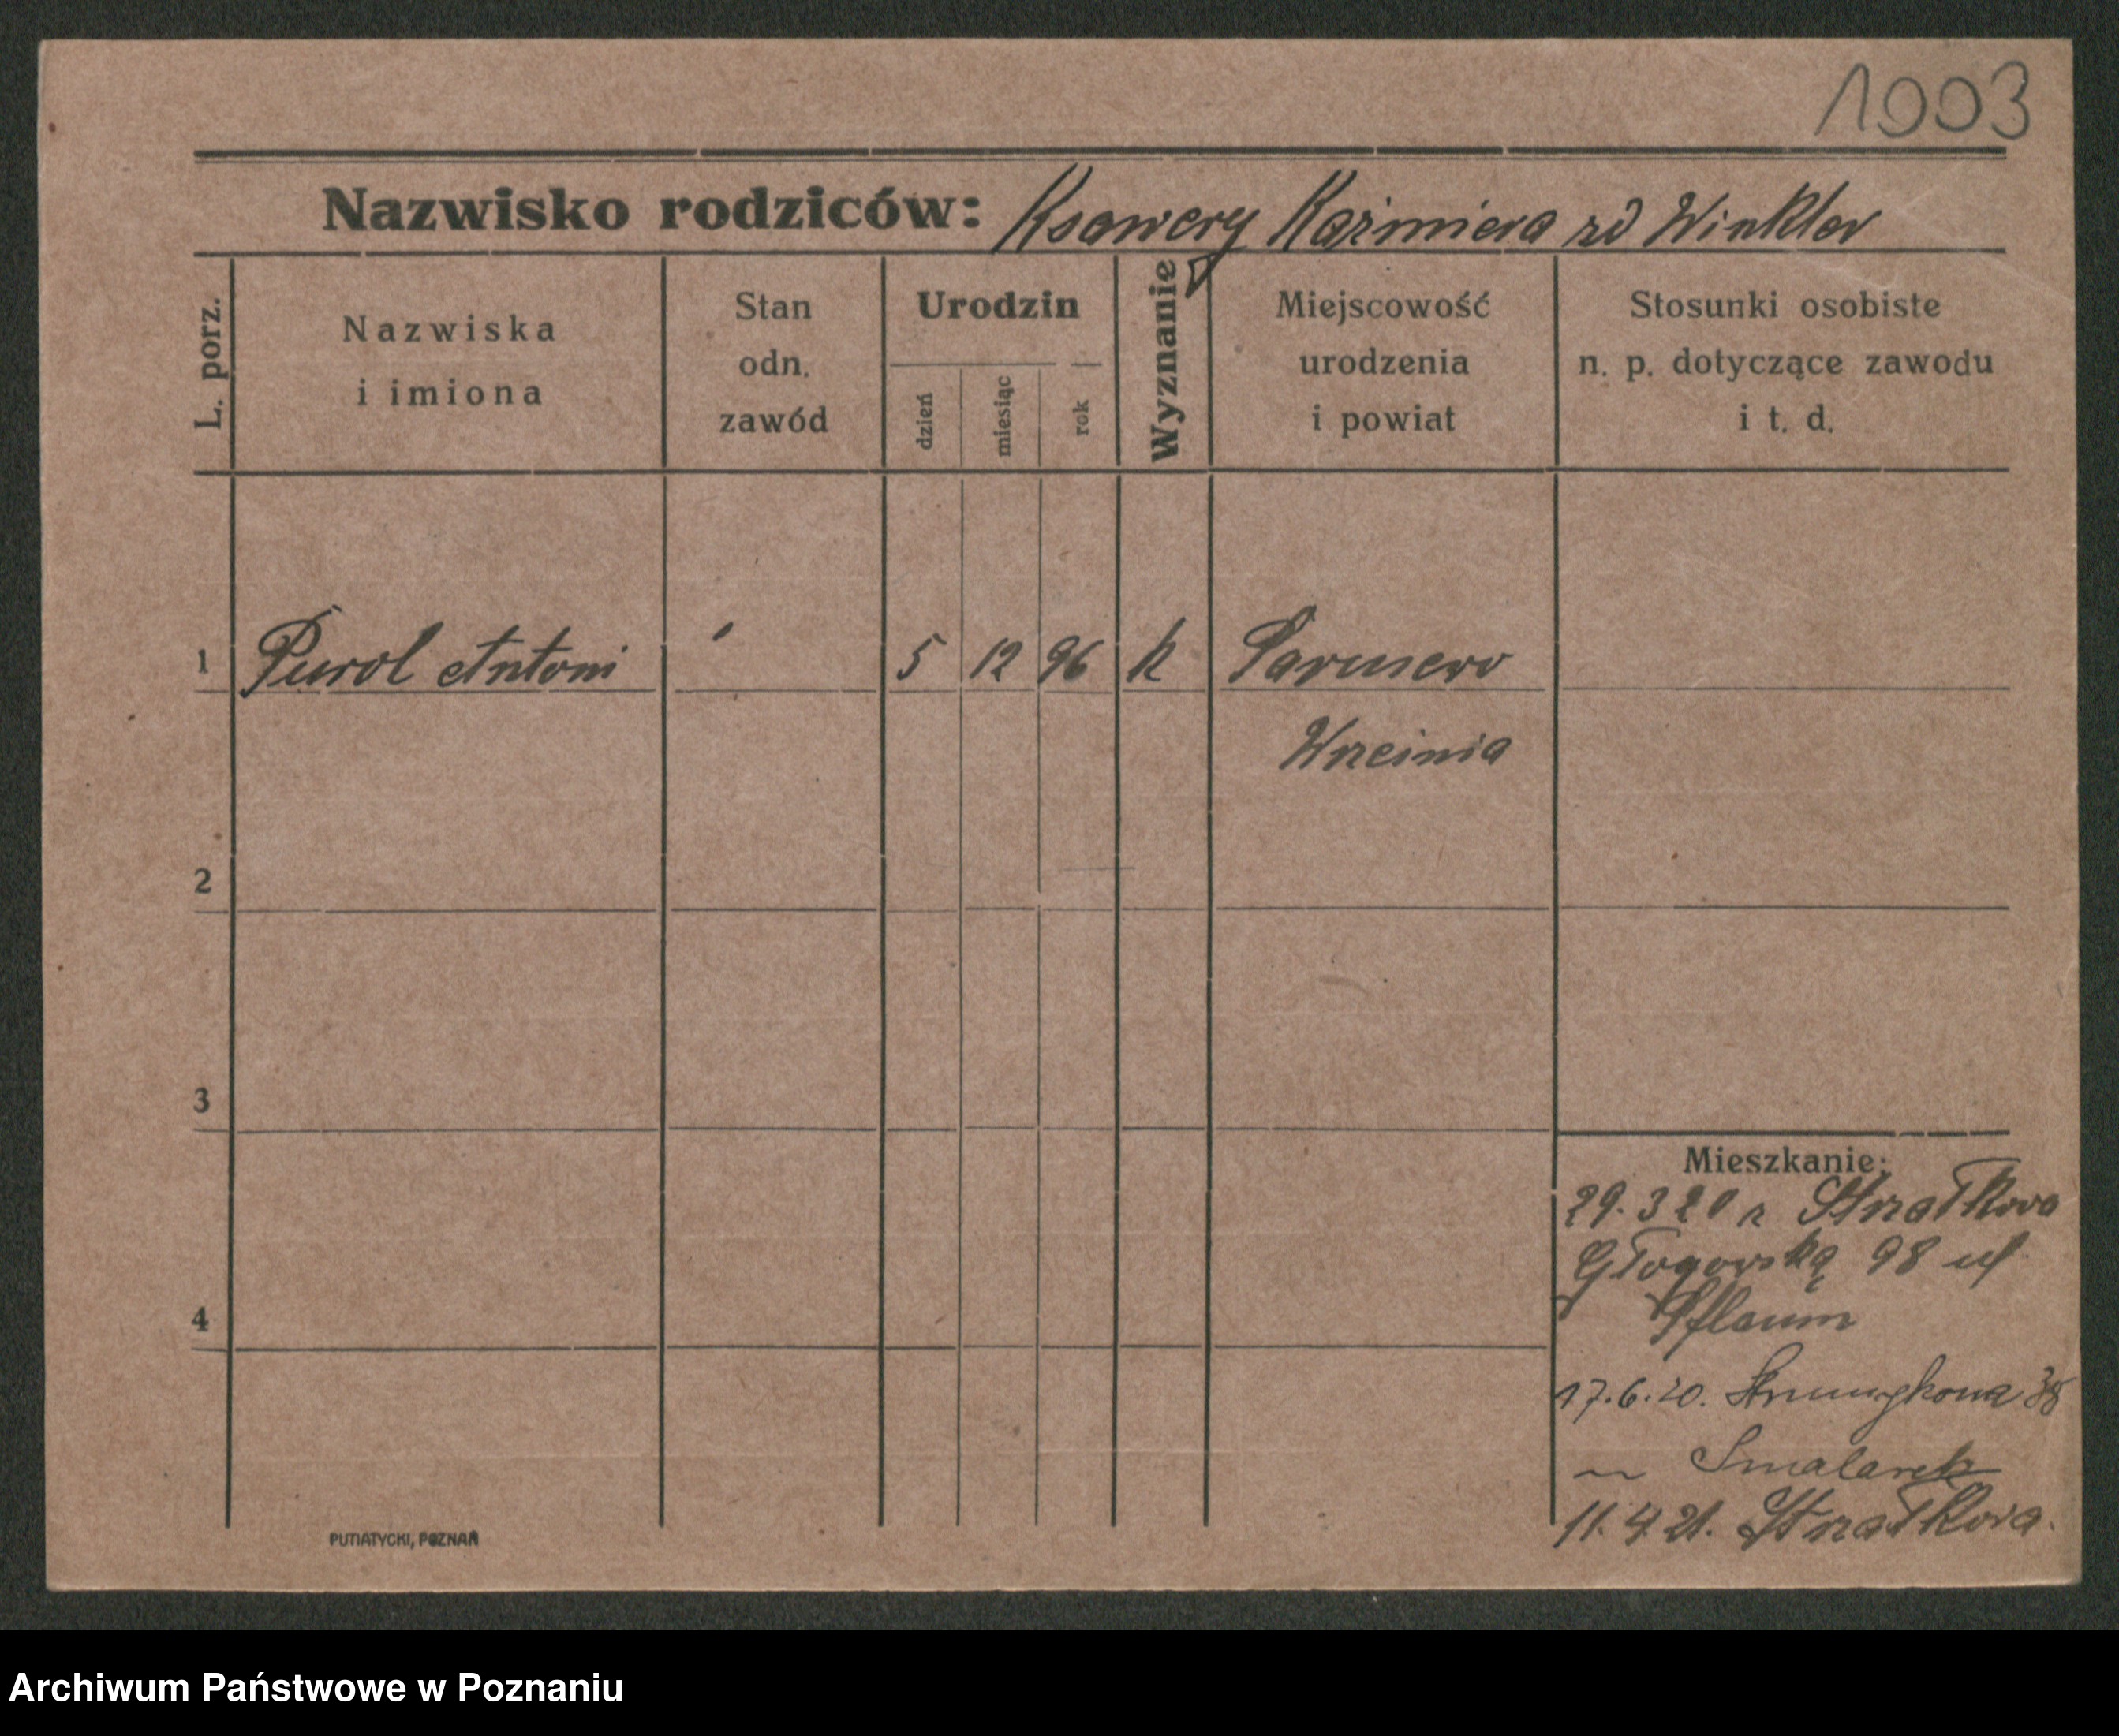 1003
Nazwisko rodziców: Ksawery Kaźmiera zd Winkler
L. porz.
Nazwiska
i imiona
Stan
odn.
zawód
Urodzin
dzień
miesiąc
rok
Wyznanie
Miejscowość
urodzenia
i powiat
Stosunki osobiste
n. p. dotyczące zawodu
i t. d.
1 Purol Antoni 5 12 96 k
2
3
4
Mieszkanie:
29. 3 20 z Strzałkowa
Głogowską 98 ul
Pflaum
17. 6. 20. 38
Smalarek
11. 4 21. Strzałkowa.
PUTIATYCKI, POZNAŃ
Archiwum Państwowe w Poznaniu